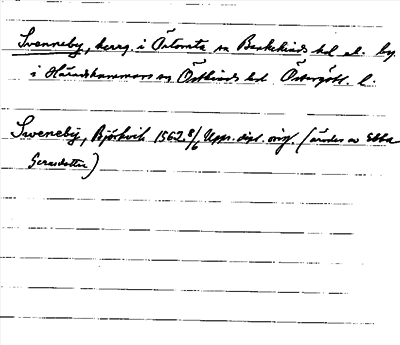 Svenneby, herrg. i Örtomta sn Bankekinds hd el. by
i Häradshammars sn Östkinds hd Östergötl. l.
Sweneby, Björkvik 1562 8/6 Upps. dipl. orig. (ärvdes av Ebba
Gerasdotter)